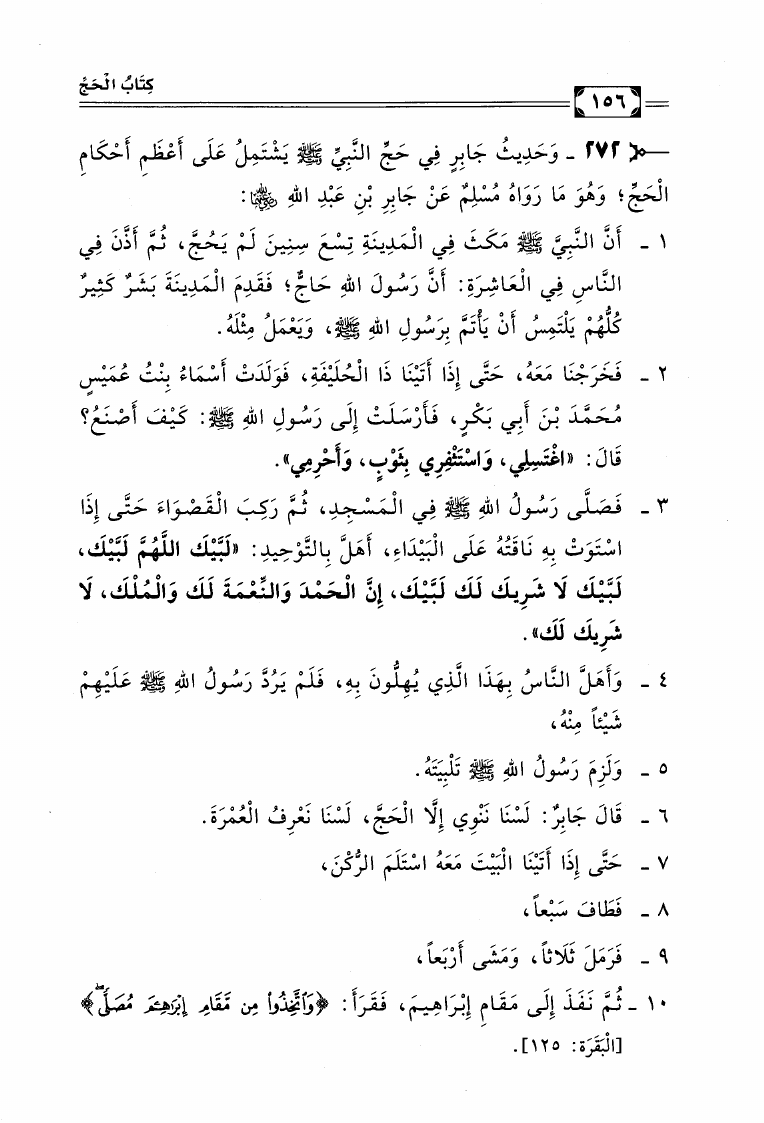 كِتَابُ الْحَجِّ
١٥٦
٢٧٢ ـ وَحَدِيثُ جَابِرٍ فِي حَجِّ النَّبِيِّ ﷺ يَشْتَمِلُ عَلَى أَعْظَمِ أَحْكَامِ
الْحَجِّ؛ وَهُوَ مَا رَوَاهُ مُسْلِمٌ عَنْ جَابِرِ بْنِ عَبْدِ اللهِ رضي الله عنهما:
١ ـ أَنَّ النَّبِيَّ ﷺ مَكَثَ فِي الْمَدِينَةِ تِسْعَ سِنِينَ لَمْ يَحُجَّ، ثُمَّ أَذَّنَ فِي
النَّاسِ فِي الْعَاشِرَةِ: أَنَّ رَسُولَ اللهِ حَاجٌّ؛ فَقَدِمَ الْمَدِينَةَ بَشَرٌ كَثِيرٌ
كُلُّهُمْ يَلْتَمِسُ أَنْ يَأْتَمَّ بِرَسُولِ اللهِ ﷺ، وَيَعْمَلُ مِثْلَهُ.
٢ ـ فَخَرَجْنَا مَعَهُ، حَتَّى إِذَا أَتَيْنَا ذَا الْحُلَيْفَةِ، فَوَلَدَتْ أَسْمَاءُ بِنْتُ عُمَيْسٍ
مُحَمَّدَ بْنَ أَبِي بَكْرٍ، فَأَرْسَلَتْ إِلَى رَسُولِ اللهِ ﷺ: كَيْفَ أَصْنَعُ؟
قَالَ: «اغْتَسِلِي، وَاسْتَثْفِرِي بِثَوْبٍ، وَأَحْرِمِي».
٣ ـ فَصَلَّى رَسُولُ اللهِ ﷺ فِي الْمَسْجِدِ، ثُمَّ رَكِبَ الْقَصْوَاءَ حَتَّى إِذَا
اسْتَوَتْ بِهِ نَاقَتُهُ عَلَى الْبَيْدَاءِ، أَهَلَّ بِالتَّوْحِيدِ: «لَبَّيْكَ اللَّهُمَّ لَبَّيْكَ،
لَبَّيْكَ لَا شَرِيكَ لَكَ لَبَّيْكَ، إِنَّ الْحَمْدَ وَالنِّعْمَةَ لَكَ وَالْمُلْكَ، لَا
شَرِيكَ لَكَ».
٤ ـ وَأَهَلَّ النَّاسُ بِهَذَا الَّذِي يُهِلُّونَ بِهِ، فَلَمْ يَرُدَّ رَسُولُ اللهِ ﷺ عَلَيْهِمْ
شَيْئاً مِنْهُ،
٥ ـ وَلَزِمَ رَسُولُ اللهِ ﷺ تَلْبِيَتَهُ.
٦ ـ قَالَ جَابِرٌ: لَسْنَا نَنْوِي إِلَّا الْحَجَّ، لَسْنَا نَعْرِفُ الْعُمْرَةَ.
٧ ـ حَتَّى إِذَا أَتَيْنَا الْبَيْتَ مَعَهُ اسْتَلَمَ الرُّكْنَ،
٨ ـ فَطَافَ سَبْعاً،
٩ ـ فَرَمَلَ ثَلَاثاً، وَمَشَى أَرْبَعاً،
١٠ ـ ثُمَّ نَفَذَ إِلَى مَقَامِ إِبْرَاهِيمَ، فَقَرَأَ: ﴿وَٱتَّخِذُواْ مِن مَّقَامِ إِبْرَٰهِـۧمَ مُصَلًّىۖ﴾
[الْبَقَرَة: ١٢٥].